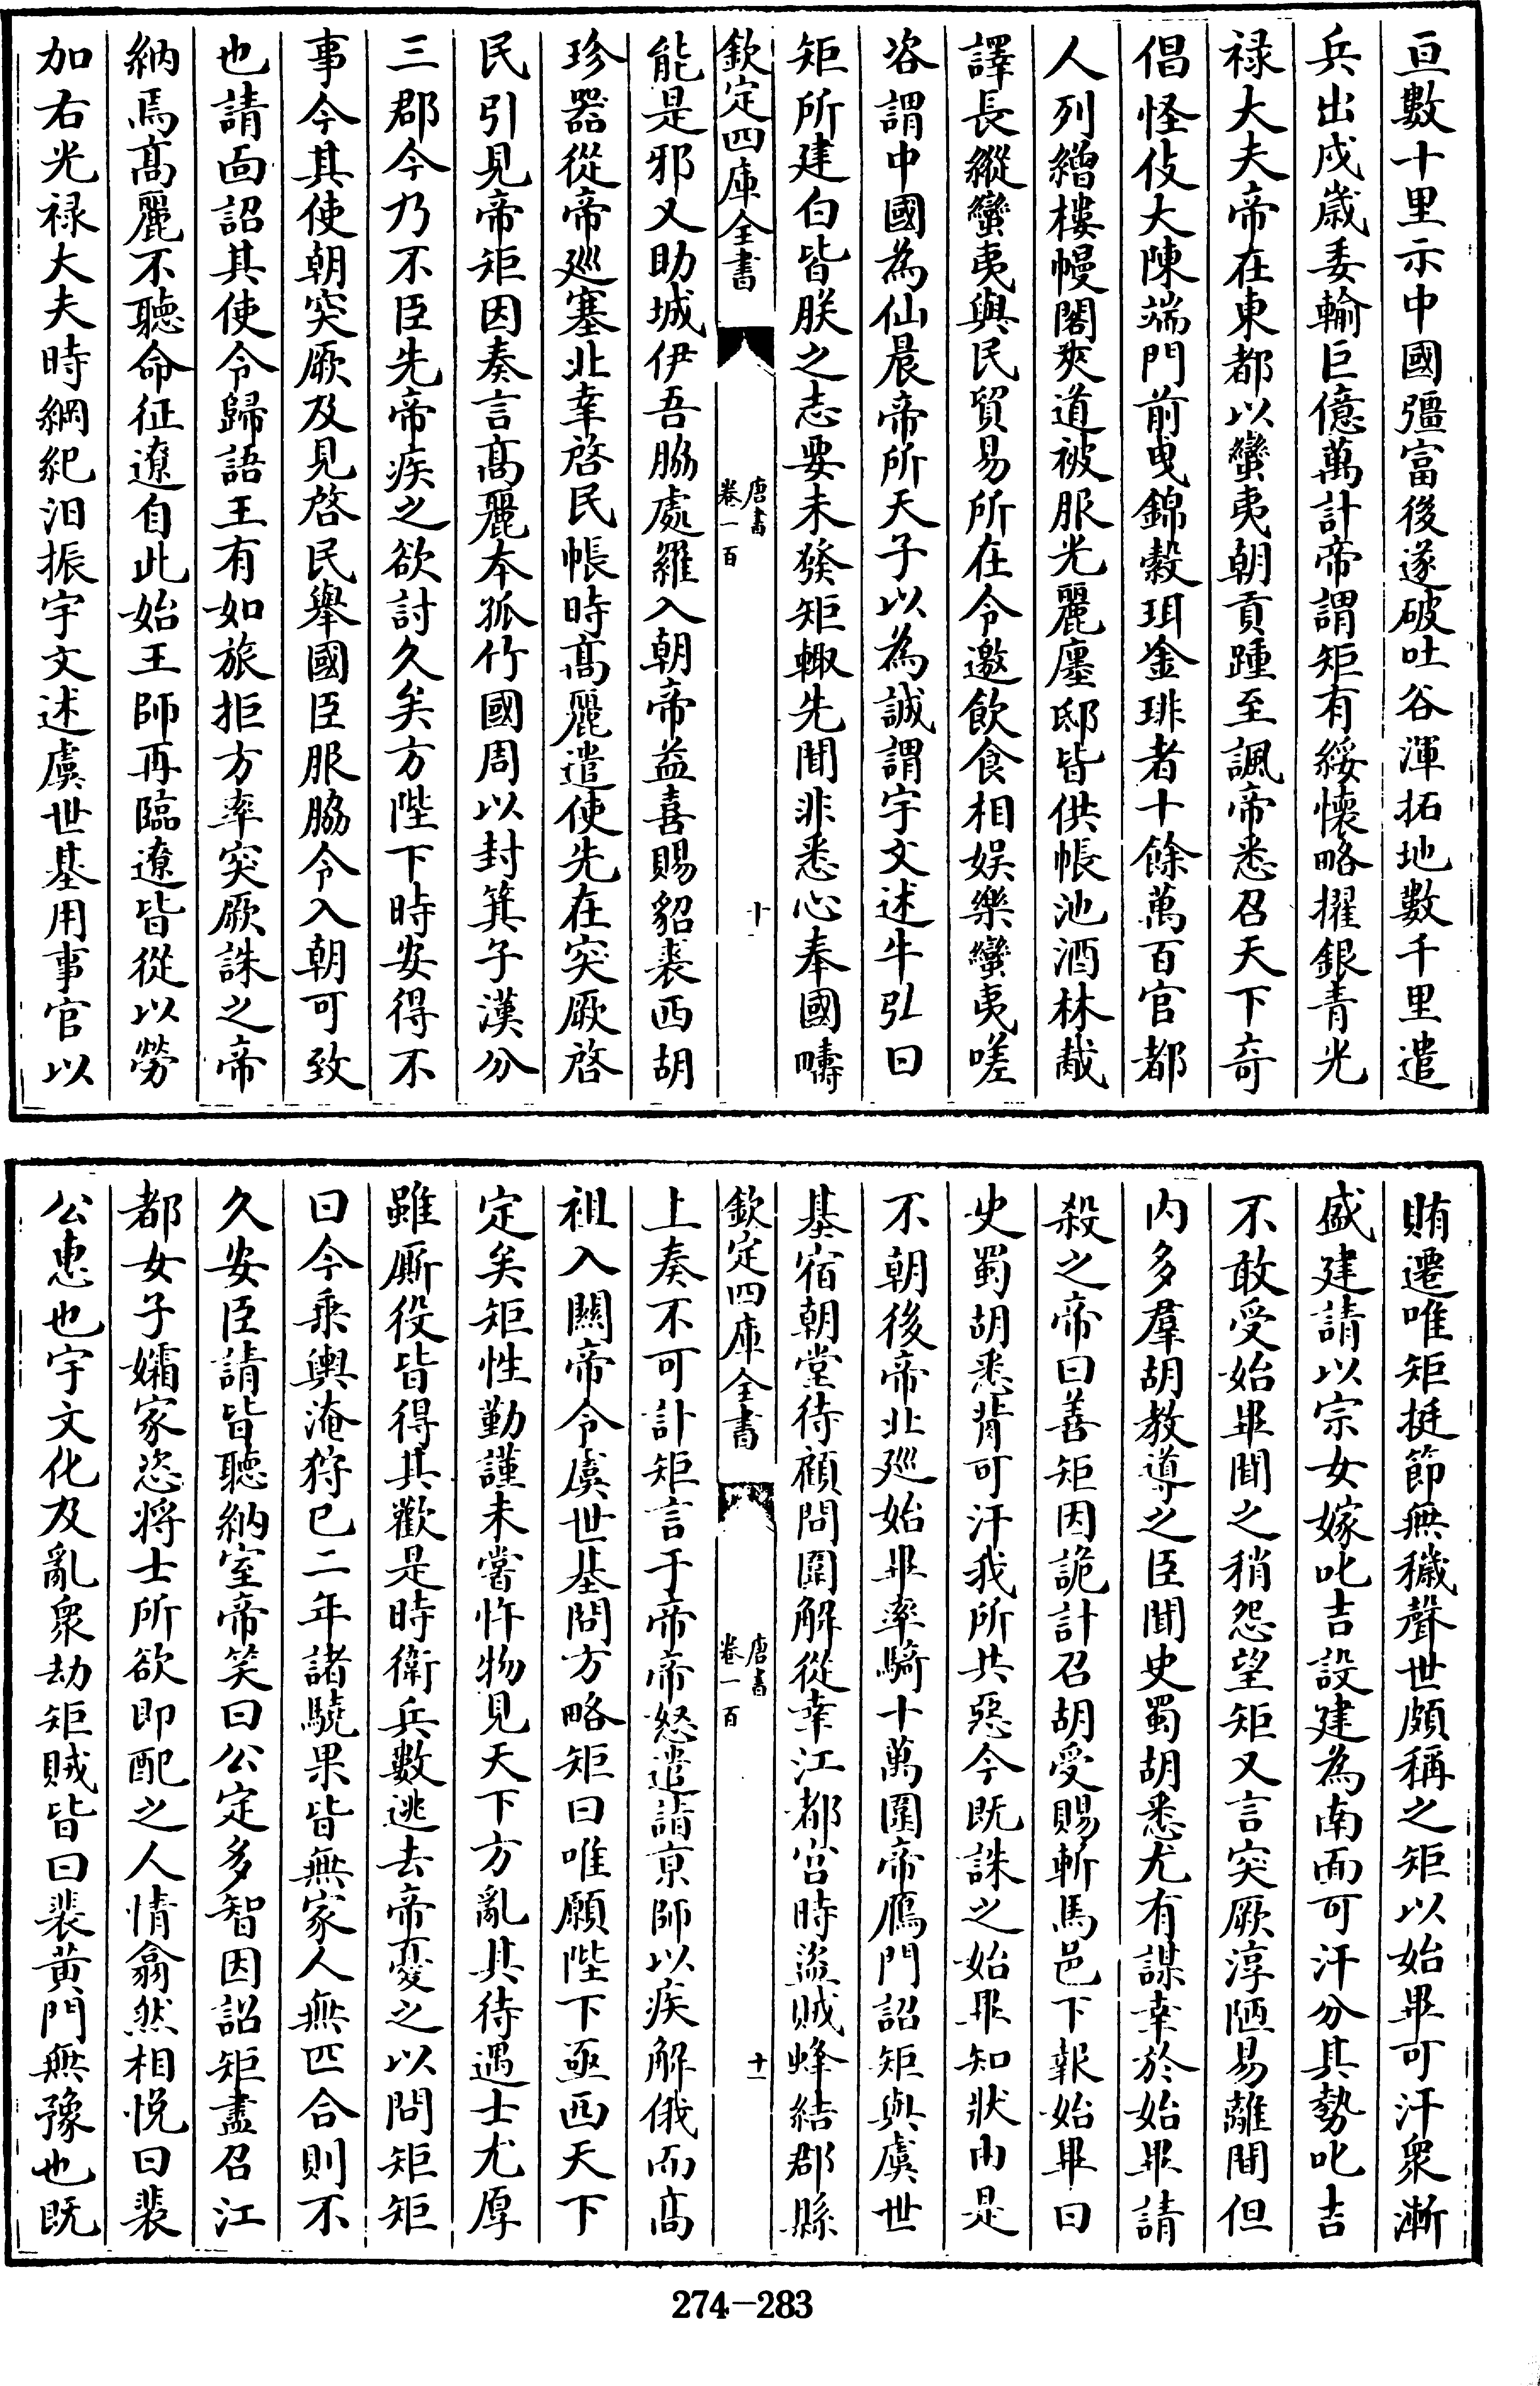 亘數十里示中國彊富後遂破吐谷渾拓地數千里遣
兵出戍歲委輸巨億萬計帝謂矩有綏懷略擢銀青光
禄大夫帝在東都以蠻夷朝貢踵至諷帝悉召天下奇
倡怪伎大陳端門前曳錦縠珥金琲者十餘萬百官都
人列繒樓幔閣夾道被服光麗廛邸皆供帳池酒林胾
譯長縱蠻夷與民貿易所在令邀飲食相娱樂蠻夷嗟
咨謂中國為仙晨帝所天子以為誠謂宇文述牛弘曰
矩所建白皆朕之志要未發矩輙先聞非悉心奉國疇
欽定四庫全書
唐書
卷一百
十
能是邪又助城伊吾脇處羅入朝帝益喜賜貂裘西胡
珍器從帝巡塞北幸啓民帳時髙麗遣使先在突厥啓
民引見帝矩因奏言髙麗本孤竹國周以封箕子漢分
三郡今乃不臣先帝疾之欲討久矣方陛下時安得不
事今其使朝突厥及見啓民舉國臣服脇令入朝可致
也請面詔其使令歸語王有如旅拒方率突厥誅之帝
納焉髙麗不聽命征遼自此始王師再臨遼皆從以勞
加右光禄大夫時綱紀汨振宇文述虞世基用事官以
賄遷唯矩挺節無穢聲世頗稱之矩以始畢可汗衆漸
盛建請以宗女嫁叱吉設建為南面可汗分其勢叱吉
不敢受始畢聞之稍怨望矩又言突厥淳陋易離間但
内多羣胡教導之臣聞史蜀胡悉尤有謀幸於始畢請
殺之帝曰善矩因詭計召胡受賜斬馬邑下報始畢曰
史蜀胡悉背可汗我所共惡今既誅之始畢知狀由是
不朝後帝北巡始畢率騎十萬圍帝鴈門詔矩與虞世
基宿朝堂待顧問圍解從幸江都宫時盜賊蜂結郡縣
欽定四庫全書
唐書
卷一百
十一
上奏不可計矩言于帝帝怒遣詣京師以疾解俄而髙
祖入關帝令虞世基問方略矩曰唯願陛下亟西天下
定矣矩性勤謹未嘗忤物見天下方亂其待遇士尤厚
雖厮役皆得其歡是時衛兵數逃去帝憂之以問矩矩
曰今乘輿淹狩已二年諸驍果皆無家人無匹合則不
久安臣請皆聽納室帝笑曰公定多智因詔矩盡召江
都女子孀家恣將士所欲即配之人情翕然相悦曰裴
公惠也宇文化及亂衆劫矩賊皆曰裴黄門無豫也既
274-283